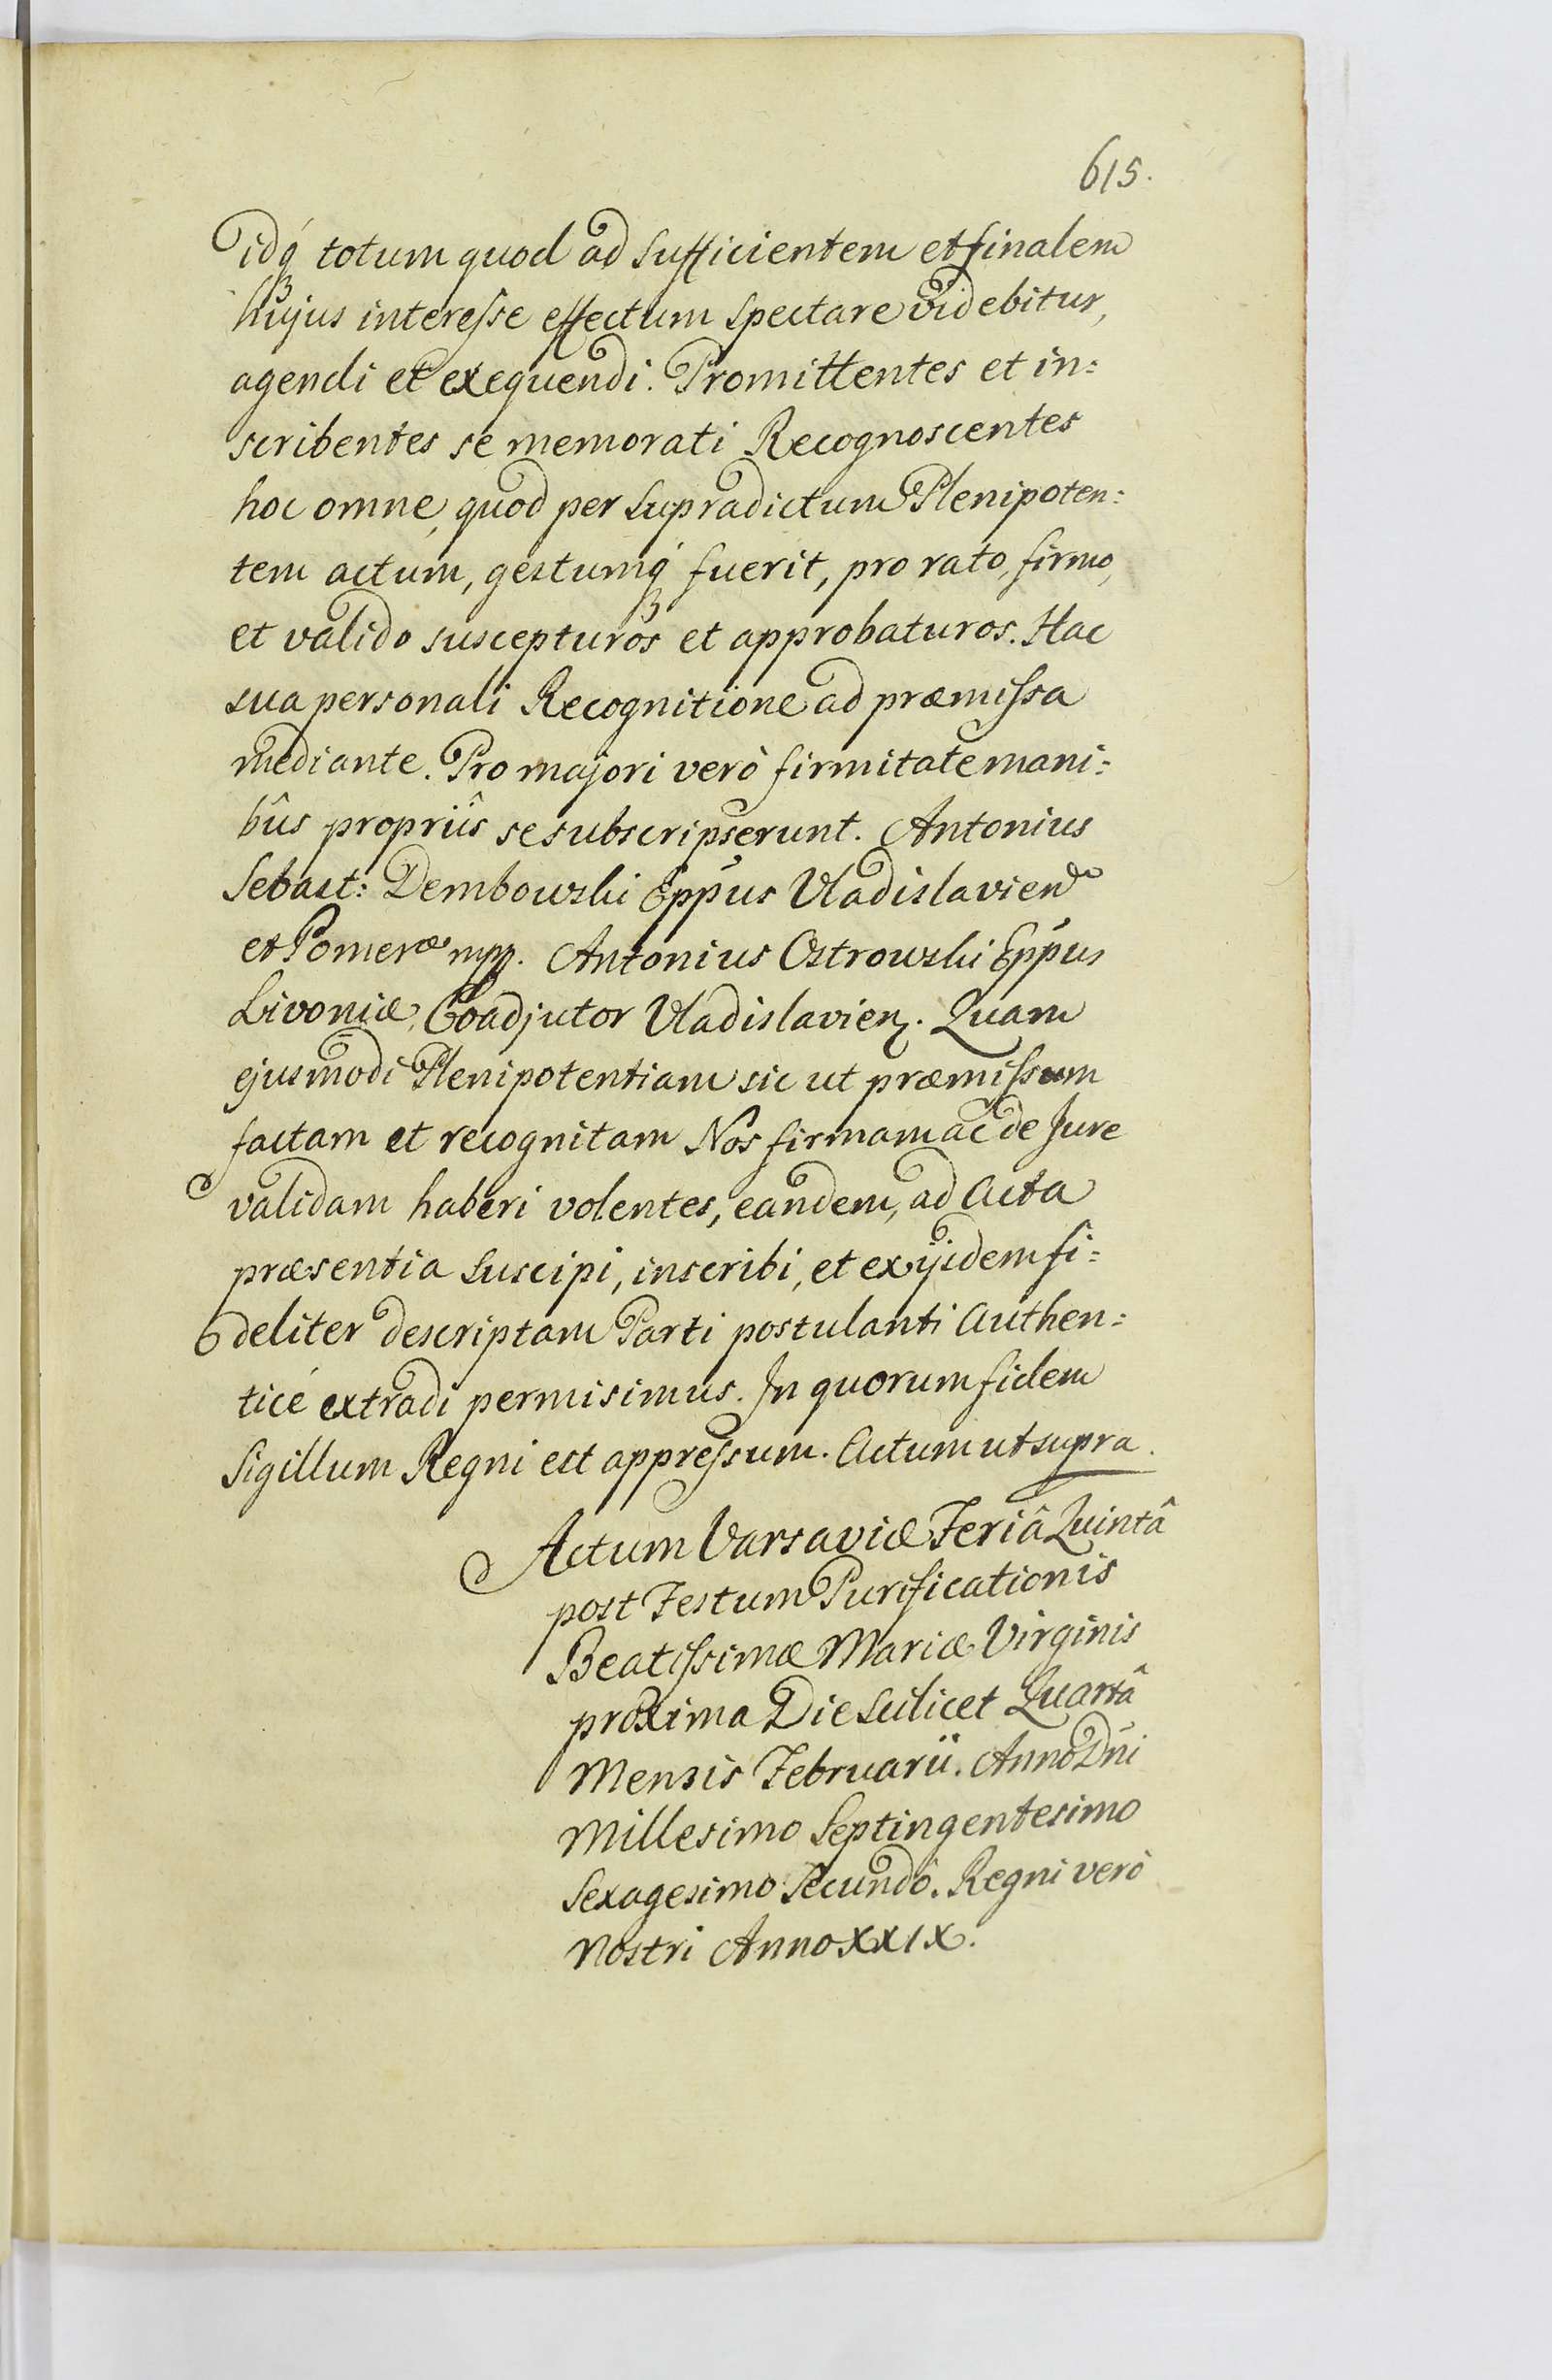 615.
idq́ꝫ totum quod ad Sufficientem et finalem
hujus interesse effectum Spectare videbitur,
agendi et exequendi. Promittentes et in=
scribentes se memorati Recognoscentes
hoc omne, quod per Supradictum Plenipoten=
tem actum, gestumq́ꝫ fuerit, pro rato, firmo,
et valido suscepturos et approbaturos. Hac
sua personali Recognitione ad præmissa
mediante. Pro majori verò firmitate mani=
bûs propriîs se subscripserunt. Antonius
Sebast: Dembowski Eppus Vladislavien
et Pomeræ mpp. Antonius Ostrowski Eppus
Livoniæ, Coadjutor Vladislavien. Quam
ejusmodi Plenipotentiam sic ut præmissum
factam et recognitam Nos firmam ac de Jure
validam haberi volentes, eandem, ad Acta
præsentia Suscipi, inscribi, et ex ijsdem fi=
deliter descriptam Parti postulanti Authen=
ticé extradi permisimus. In quorum fidem
Sigillum Regni est appressum. Actum ut supra.
Actum Varsaviæ Feriâ Quintâ
post Festum Purificationis
Beatissimæ Mariæ Virginis
proxima Die Scilicet Quartâ
Mensis Februarii. Anno Dńi
Millesimo Septingentesimo
Sexagesimo Secundô. Regni verò
Nostri Anno XXIX.